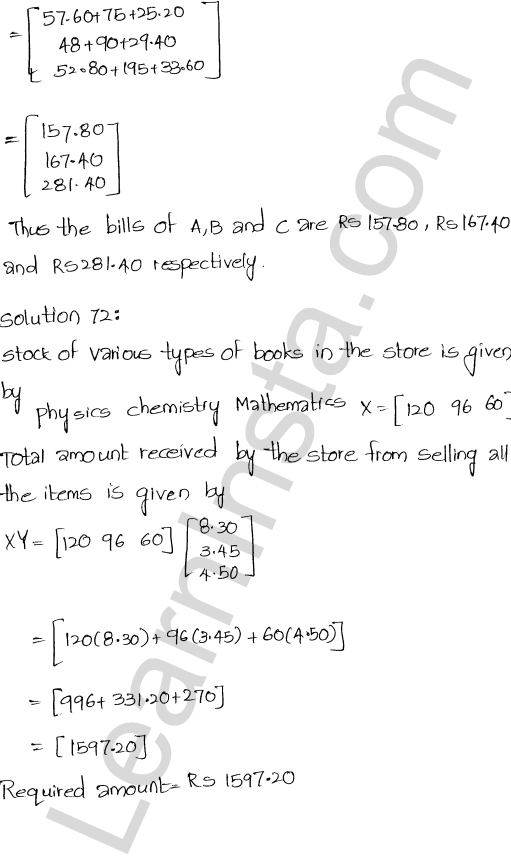 = [57.60+75+25.20
48+90+29.40
52.80+195+33.60]
= [157.80
167.40
281.40]
Thus the bills of A,B and C are Rs 157.80, Rs 167.40
and Rs 281.40 respectively.
Solution 72:
Stock of various types of books in the store is given
by
Physics chemistry Mathematics X = [120 96 60]
Total amount received by the store from selling all
the items is given by
XY = [120 96 60] [8.30
3.45
4.50]
= [120(8.30) + 96(3.45) + 60(4.50)]
= [996+ 331.20+270]
= [1597.20]
Required amount = Rs 1597.20
LearnInsta.com